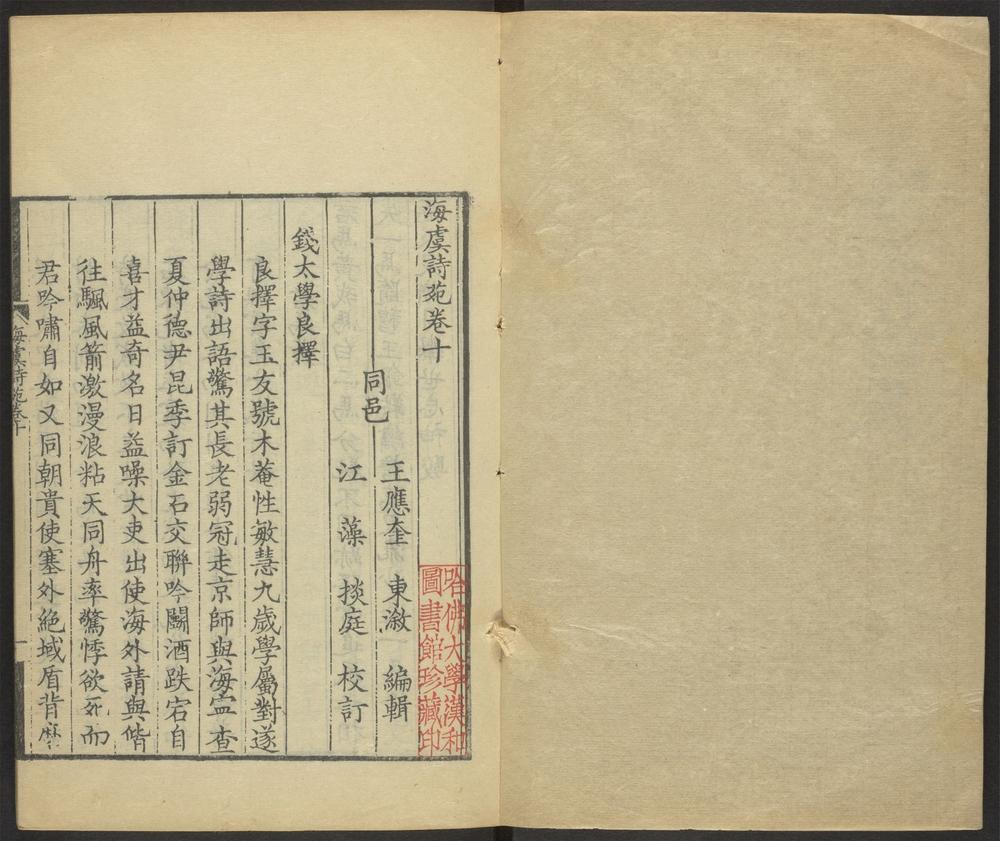 海虞詩苑卷十
王應奎　東漵　編輯
同邑
江　藻　掞庭　校訂
錢太學良擇
良擇字玉友號木菴性敏慧九歲學屬對遂
學詩出語驚其長老弱冠走京師與海寧查
夏仲德尹昆季訂金石交聯吟鬬酒跌宕自
喜才益奇名日益噪大吏出使海外請與偕
往颿風箭激漫浪粘天同舟率驚悸欲死而
君吟嘯自如又同朝貴使塞外絕域盾背磨
海虞詩苑卷十
一
哈佛大學漢和
圖書館珍藏印